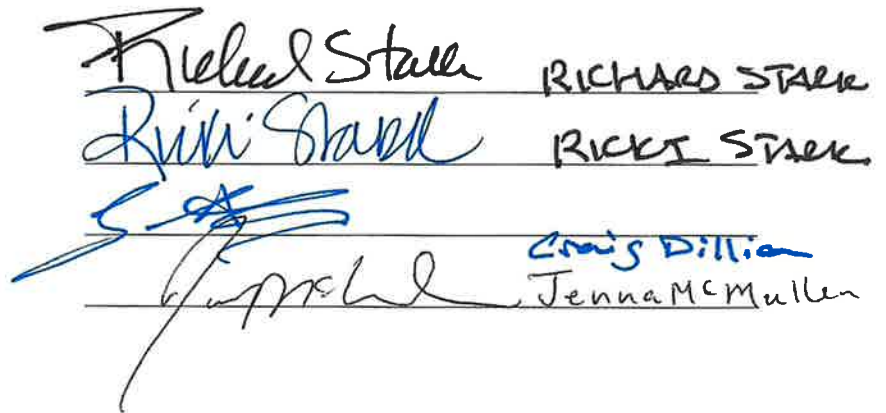 Richard Stark RICHARD STARK
Ricki Stark RICKI STARK
Craig Dillian
Jenna McMullen